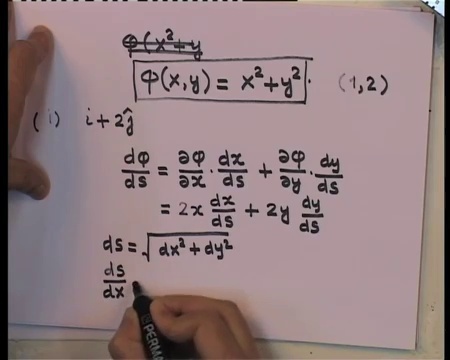 φ(x²+y
φ(x,y) = x²+y². (1,2)
(i) i+2ĵ
dφ/ds = ∂φ/∂x · dx/ds + ∂φ/∂y · dy/ds
= 2x dx/ds + 2y dy/ds
ds = √(dx²+dy²)
ds/dx
PERMA